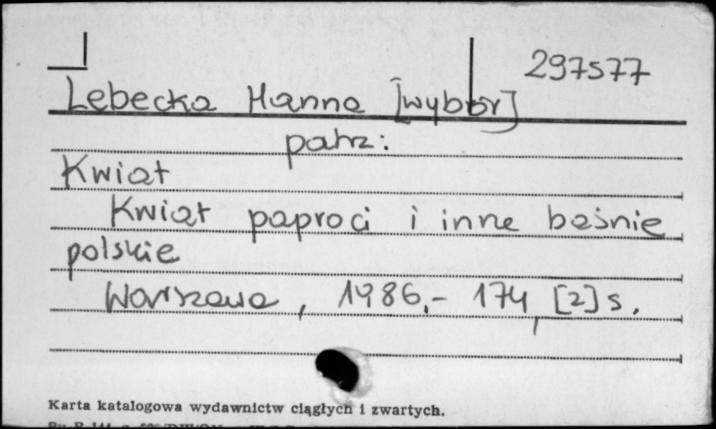 297577
Lebecka Hanna [wybór]
patrz:
Kwiat
Kwiat paproci i inne baśnie
polskie
Warszawa, 1986,- 174, [2] s.
Karta katalogowa wydawnictw ciągłych i zwartych.